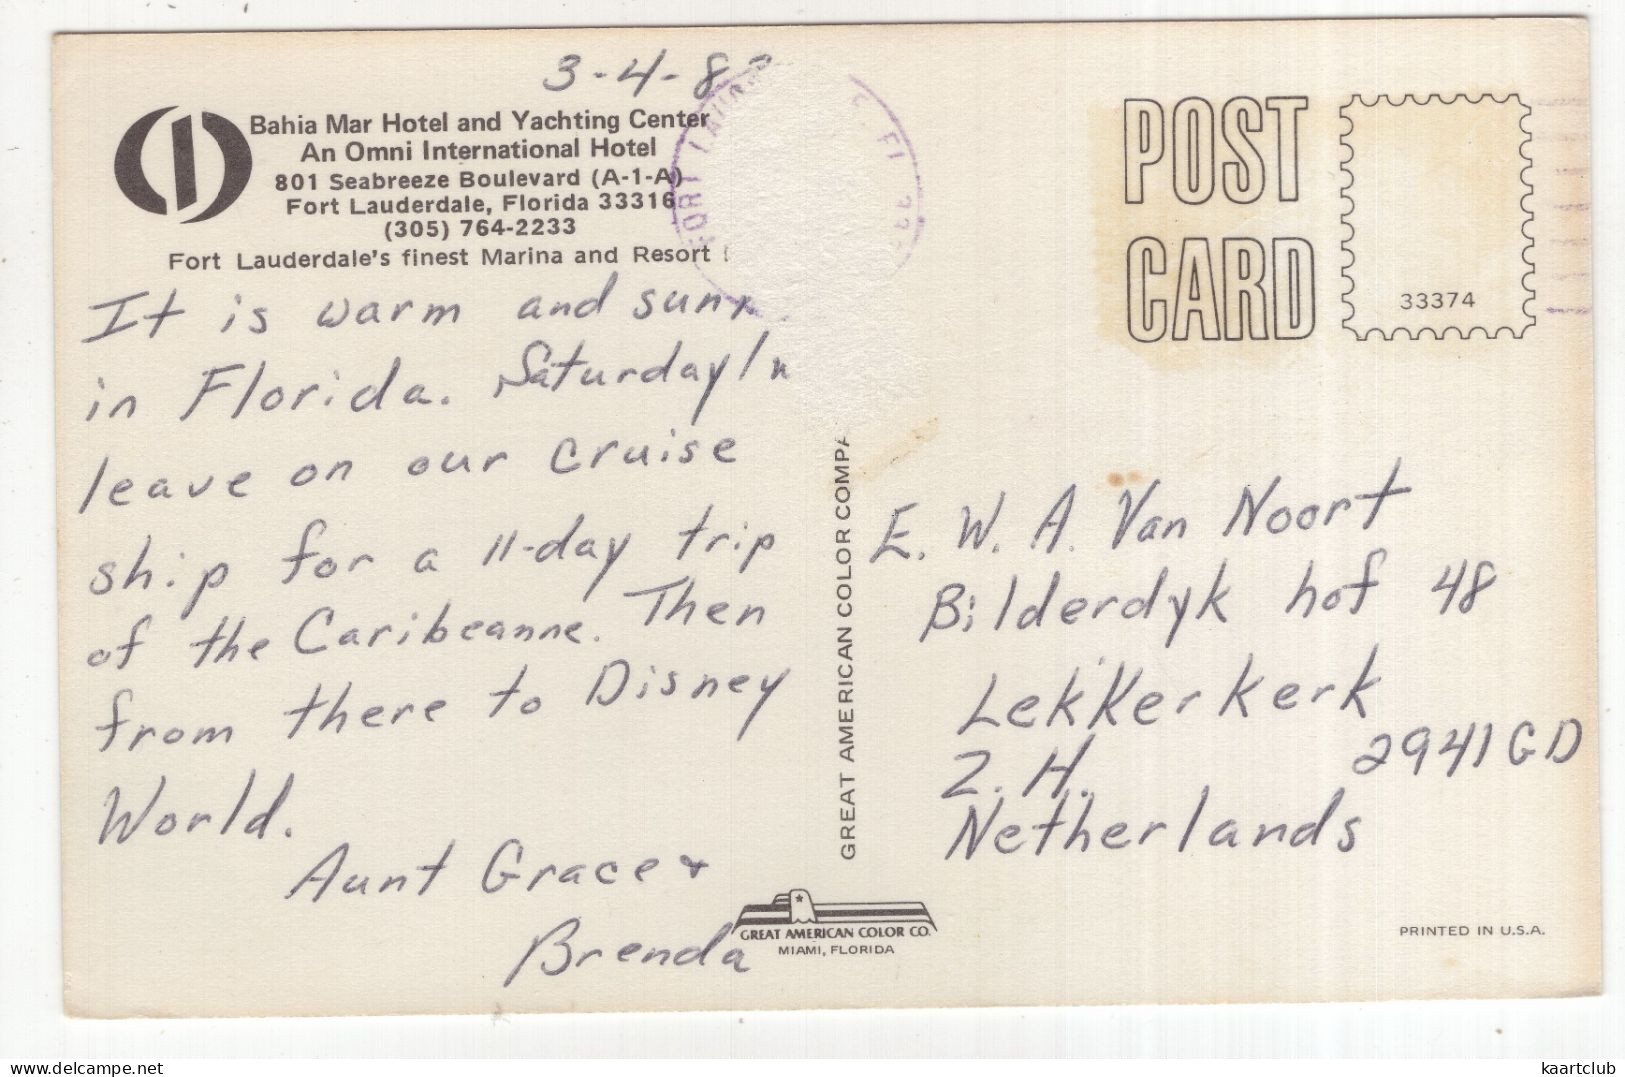 3-4-8
Bahia Mar Hotel and Yachting Center
An Omni International Hotel
801 Seabreeze Boulevard (A-1-A)
Fort Lauderdale, Florida 33316
(305) 764-2233
Fort Lauderdale's finest Marina and Resort
It is warm and sunn
in Florida. Saturday
leave on our cruise
ship for a 11-day trip
of the Caribeanne. Then
from there to Disney
World.
Aunt Grace &
Brenda
FORT LAUD
FL
GREAT AMERICAN COLOR COMPA
GREAT AMERICAN COLOR CO.
MIAMI, FLORIDA
POST
CARD
33374
E. W. A. Van Noort
Bilderdyk hof 48
Lekkerkerk
Z. H. 2941GD
Netherlands
PRINTED IN U.S.A.
www.delcampe.net
kaartclub